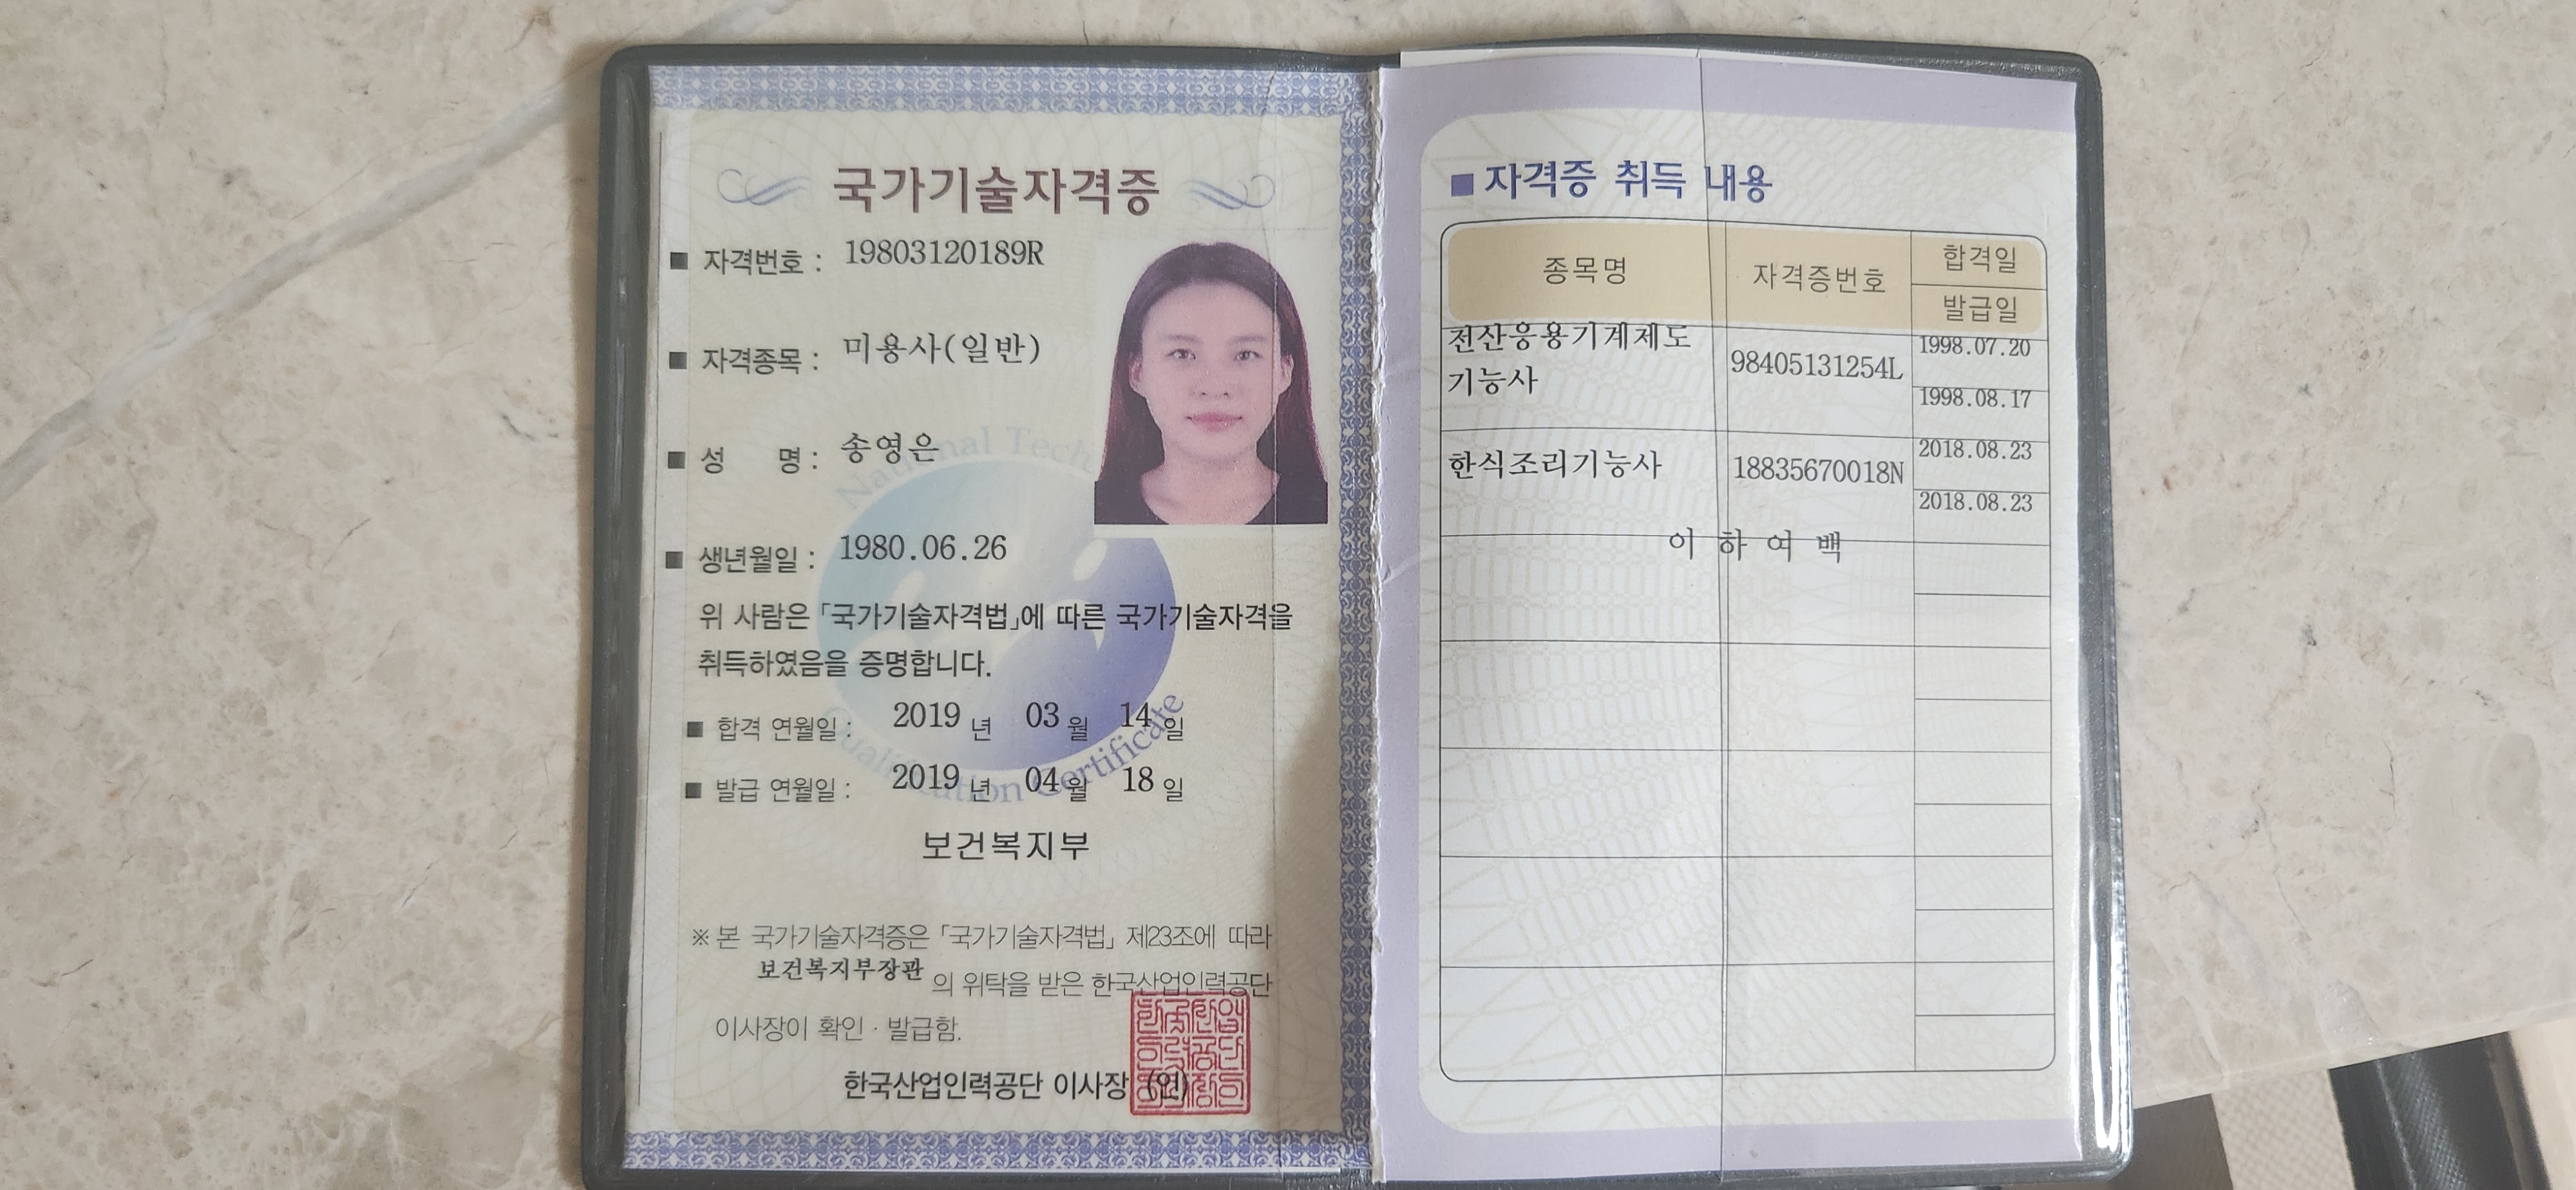 국가기술자격증
■ 자격번호 : 19803120189R
■ 자격종목 : 미용사(일반)
■ 성 명 : 송영은
■ 생년월일 : 1980.06.26
위 사람은 「국가기술자격법」에 따른 국가기술자격을
취득하였음을 증명합니다.
■ 합격 연월일 : 2019 년 03 월 14 일
■ 발급 연월일 : 2019 년 04 월 18 일
보건복지부
※ 본 국가기술자격증은 「국가기술자격법」 제23조에 따라
보건복지부장관 의 위탁을 받은 한국산업인력공단
이사장이 확인 · 발급함.
한국산업인력공단 이사장 (인)
National Tech
Qualification Certificate
■ 자격증 취득 내용
종목명 자격증번호 합격일
발급일
전산응용기계제도 기능사 98405131254L 1998.07.20
1998.08.17
한식조리기능사 18835670018N 2018.08.23
2018.08.23
이 하 여 백